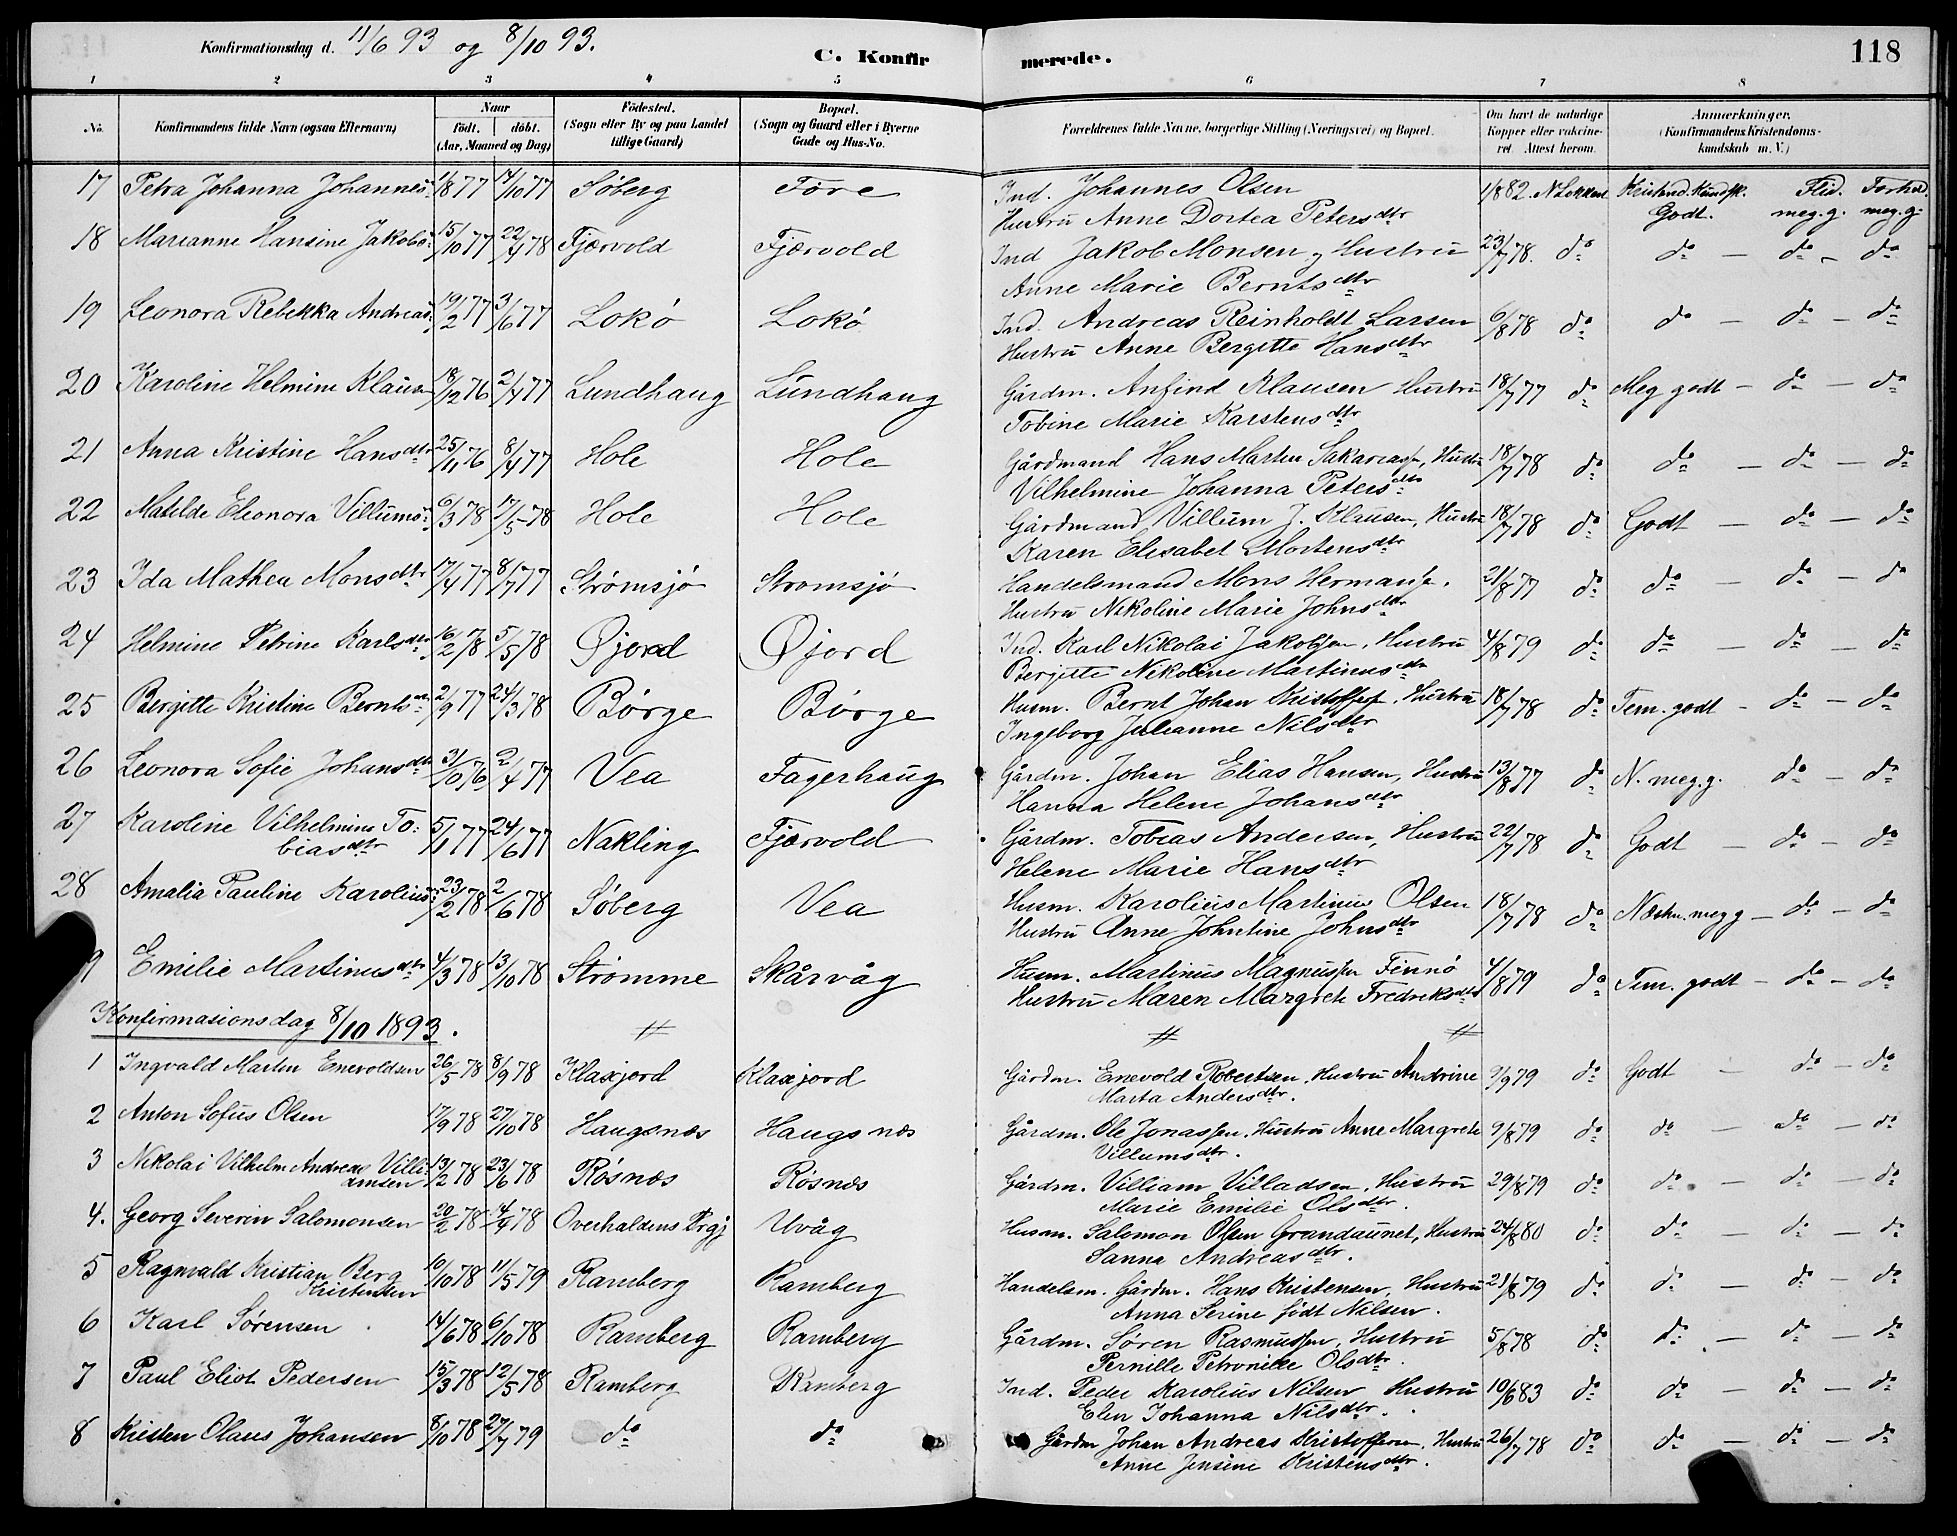 Konfirmationsdag d. 11/6 93 og 8/10 93.
C. Konfirmerede.
118
1 2 3 4 5 6 7 8
No. Konfirmandens fulde Navn (ogsaa Efternavn) Naar födt. döbt. (Aar, Maaned og Dag) Födested. (Sogn eller By og paa Landet tillige Gaard) Bopæl. (Sogn og Gaard eller i Byerne Gade og Hus-No. Forældrenes fulde Navne, borgerlige Stilling (Næringsvei) og Bopæl. Om havt de naturlige Kopper eller vakcineret. Attest herom. Anmærkninger. (Konfirmandens Kristendomskundskab m. V.)
17 Petra Johanna Johannes: 1/8 77 14/10 77 Søberg Føre Ind. Johannes Olsen 1/8 82. N Lekkem Kristend. Kundsk. Flid. Forhol
Hustru Anne Dortea Petersdtr Godt. meg. g. meg. g.
18 Marianne Hansine Jakobs: 15/10 77 22/4 78 Fjærvold Fjærvold Ind Jakob Monsen, Hustru 23/7 78. do do — do — do
Anne Marie Berntsdtr
19 Leonora Rebekka Andreas: 19/2 77 3/6 77 Lokø Lokø Ind. Andreas Reinholdt Larsen 6/8 78 do do — do — do
Hustru Anne Bergitte Hansdtr
20 Karoline Helmine Klausen 18/12 76 2/4 77 Lundhaug Lundhaug Gårdm. Anfind Klausen Hustru 18/7 77 do Meg godt — do — do
Tobine Marie Karstensdtr
21 Anna Kristine Hansdtr 25/11 76 8/4 77 Hole Hole Gårdmand Hans Martin Sakariass., Hustru 18/7 78 do do — do — do
Vilhelmine Johanna Petersdtr
22 Matilde Eleonora Villums: 6/3 78 17/5 78 Hole Hole Gårdmand Villum J. Klausen, Hustru 18/7 78 do Godt — do — do
Karen Elisabet Mortensdtr
23 Ida Mathea Monsdtr 17/4 77 8/7 77 Strømsjø Strømsjø Handelsmand Mons Hermans. 21/8 77 do do — do — do
Hustru Nikoline Marie Johnsdtr
24 Helmine Petrine Karlsdtr 16/2 78 5/5 78 Øjord Øjord Ind. Karl Nikolai Jakobsen, Hustru 4/8 79 do do — do — do
Bergitte Nikoline Martinusdtr
25 Bergitte Kristine Berntsdtr 2/9 77 24/3 78 Børge Børge Husm. Bernt Johan Kristoffers., Hustru 18/7 78 do Tem. godt — do — do
Ingeborg Julianne Nilsdtr
26 Leonora Sofie Johansdtr 31/10 76 2/4 77 Vea Fagerhaug Gårdm. Johan Elias Hansen, Hustru 13/8 77 do N. meg. g. do — do
Hanna Helene Johansdtr
27 Karoline Vilhelmine To: 5/1 77 24/6 77 Nakling Fjærvold Gårdm. Tobias Andersen, Hustru 22/7 78 do Godt — do — do
biasdtr Helene Marie Hansdtr
28 Amalia Pauline Karolius: 23/2 78 2/6 78 Søberg Vea Husm. Karolius Martinus Olsen 18/7 78 do Næstn. meg g — do — do
Hustru Anne Johntine Johnsdtr
9 Emilie Martinusdtr 4/3 78 13/10 78 Strømme Skårvåg Husm. Martinus Magnussen Finnø 4/8 79 do Tem. godt — do — do
Hustru Maren Margrete Fredriksdtr
Konfirmasionsdag 8/10 1893.
1 Ingvald Martin Enevoldsen 26/5 78 8/9 78 Klaxjord Klaxjord Gårdm. Enevold Robertsen, Hustru Andrine 9/9 79 do Godt — do — do
Marta Andersdtr.
2 Anton Sofus Olsen 17/9 78 27/10 78 Haugsnæs Haugsnæs Gårdm. Ole Jonassen, Hustru Anne Margrete 9/8 79 do do — do — do
Villumsdtr.
3 Nikolai Vilhelm Andreas Villi: 13/2 78 23/6 78 Røsnæs Røsnæs Gårdm. Villiam Villadsen, Hustru 29/8 79 do do — do — do
amsen Marie Emilie Olsdtr.
4. Georg Severin Salomonsen 20/2 78 14/4 78 Overhaldens Prgj Uvåg Husm. Salomon Olsen Grandaunet, Hustru 24/8 80 do do — do — do
Sanna Andreasdtr.
5 Ragnvald Kristian Berg 10/10 78 11/5 79 Ramberg Ramberg Handelsm. Gårdm. Hans Kristensen, Hustru 21/8 79 do do — do — do
Kristensen Anna Serine født Nilsen.
6 Karl Sørensen 14/6 78 6/10 78 Ramberg Ramberg Gårdm. Søren Rasmussen, Hustru 5/8 78 do do — do — do
Pernille Petronille Olsdtr.
7 Paul Eliot Pedersen 15/3 78 12/5 78 Ramberg Ramberg Ind. Peder Karolius Nilsen Hustru 10/6 83 do do — do — do
Elen Johanna Nilsdtr.
8 Kristen Olaus Johansen 8/10 78 27/7 79 do do Gårdm Johan Andreas Kristoffersen, Hustru 26/7 78 do do — do — do
Anne Jensine Kristensdtr.